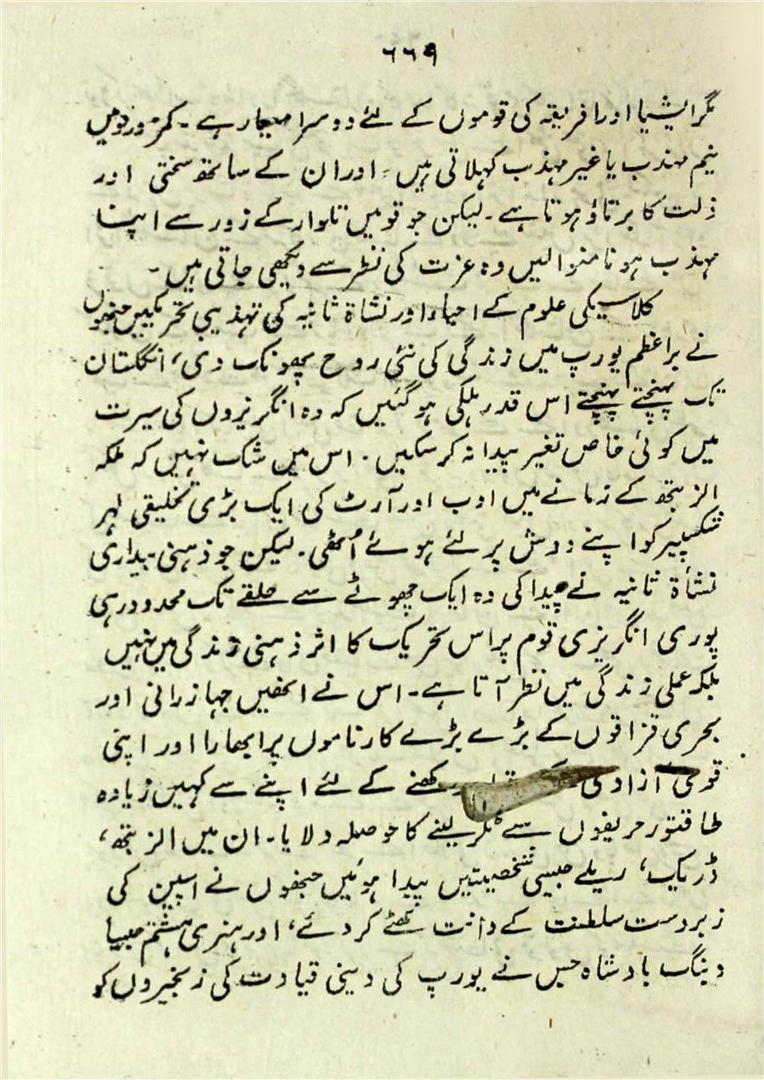 ۶۶۹
مگر ایشیا اور افریقہ کی قوموں کے لئے دوسرا معیار ہے ۔ کمزور قومیں
نیم مہذب یا غیر مہذب کہلاتی ہیں، اور ان کے ساتھ سختی اور
ذلت کا برتاؤ ہوتا ہے ۔ لیکن جو قومیں تلوار کے زور سے اپنا
مہذب ہونا منوالیں وہ عزت کی نظر سے دیکھی جاتی ہیں ۔
کلاسیکی علوم کے احیاء اور نشاۃ ثانیہ کی تہذیبی تحریکیں جنہوں
نے براعظم یورپ میں زندگی کی نئی روح پھونک دی، انگلستان
تک پہنچتے پہنچتے اس قدر ہلکی ہوگئیں کہ وہ انگریزوں کی سیرت
میں کوئی خاص تغیر پیدا نہ کرسکیں ۔ اس میں شک نہیں کہ ملکہ
الزبتھ کے زمانے میں ادب اور آرٹ کی ایک بڑی تخلیقی لہر
شکسپیر کو اپنے دوش پر لئے ہوئے اُٹھی ۔ لیکن جو ذہنی بیداری
نشأۃ ثانیہ نے پیدا کی وہ ایک چھوٹے سے حلقے تک محدود رہی
پوری انگریزی قوم پر اس تحریک کا اثر ذہنی زندگی میں نہیں
بلکہ عملی زندگی میں نظر آتا ہے ۔ اس نے انھیں جہاز رانی اور
بحری قزاقوں کے بڑے بڑے کارناموں پر ابھارا اور اپنی
قومی آزادی رکھنے کے لئے اپنے سے کہیں زیادہ
طاقتور حریفوں سے ٹکر لینے کا حوصلہ دلایا ۔ ان میں الزبتھ،
ڈریک، ریلے جیسی شخصیتیں پیدا ہوئیں جنھوں نے اسپین کی
زبردست سلطنت کے دانت کھٹے کردئے، اور ہنری ہشتم جیسا
دبنگ بادشاہ جس نے یورپ کی دینی قیادت کی زنجیروں کو